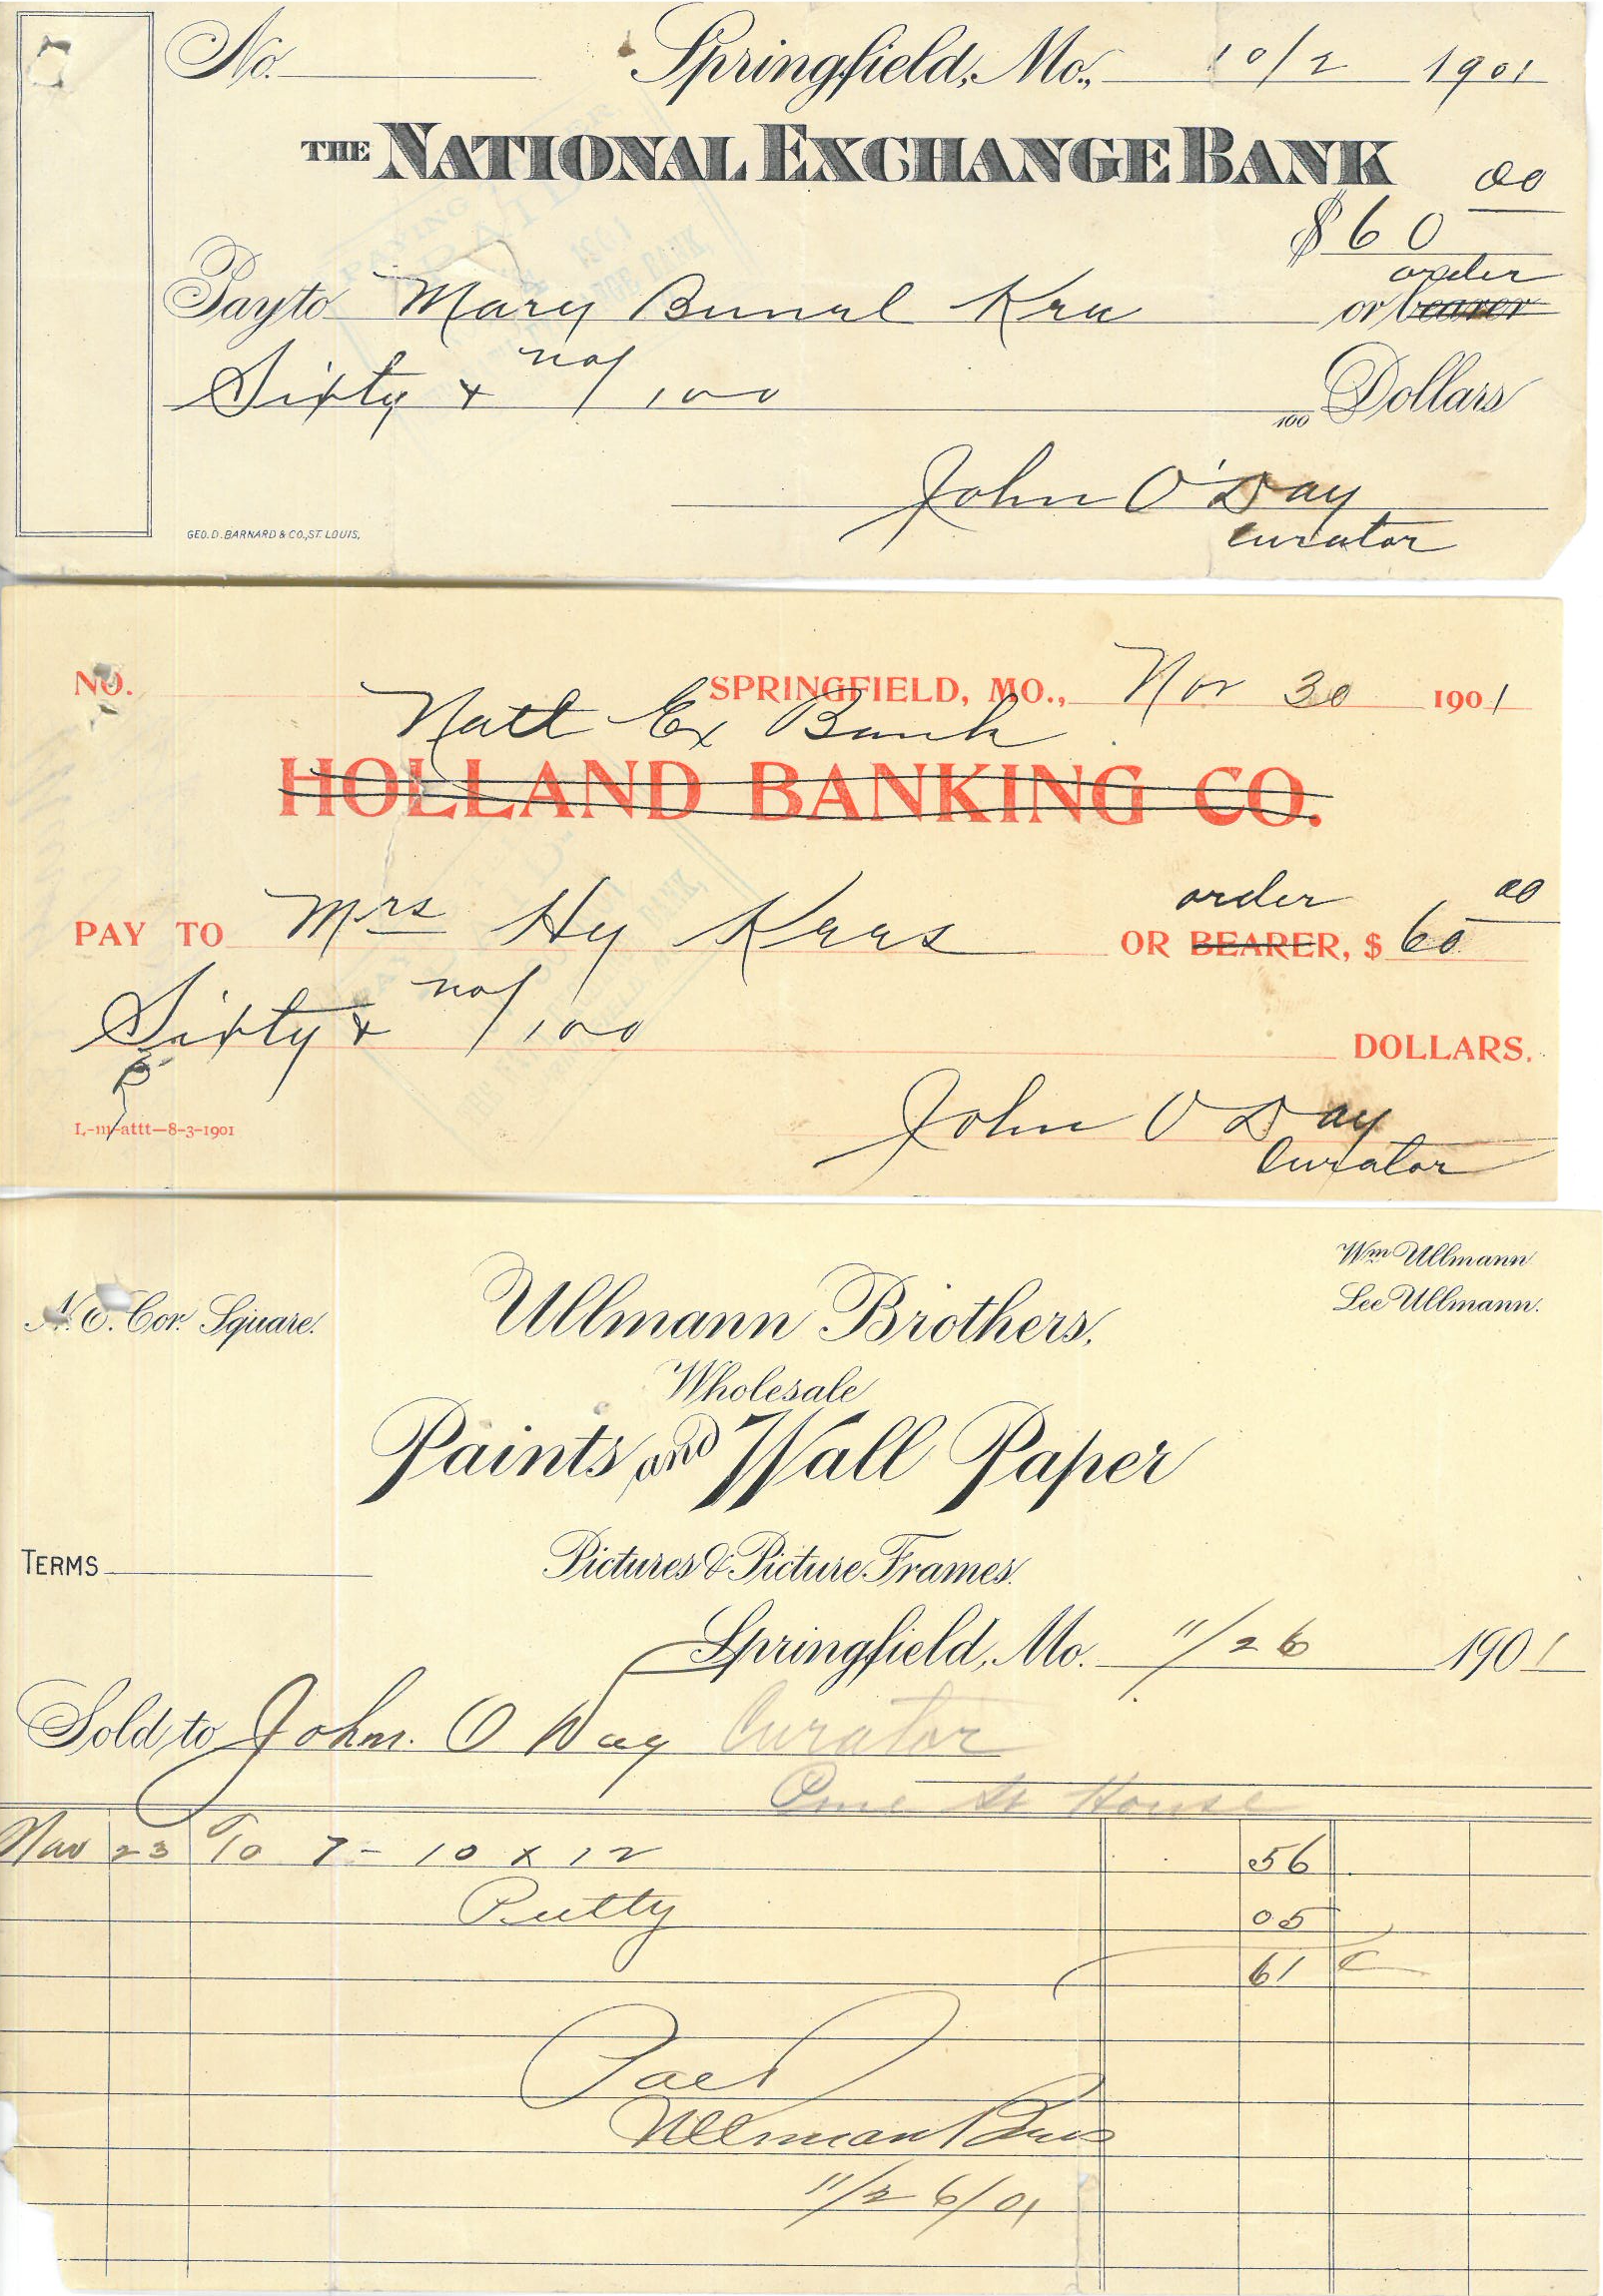 No. Springfield, Mo., 10/2 1901
THE NATIONAL EXCHANGE BANK
$60 00
order
Pay to Mary Bunal Kra or bearer
Sixty & no/100 100 Dollars
John O'Day
Curator
GEO. D. BARNARD & CO., ST. LOUIS.
NO. SPRINGFIELD, MO., Nov 30 1901
Natl Ex Bank
HOLLAND BANKING CO.
order
PAY TO Mrs Hy Kras OR BEARER, $ 60 00
Sixty & no/100 DOLLARS.
L-m-attt-8-3-1901
John O Day
Curator
Wm Ullmann
Lee Ullmann.
N.E. Cor. Square. Ullmann Brothers,
Wholesale
Paints and Wall Paper
TERMS Pictures & Picture Frames.
Springfield, Mo. 11/26 1901
Sold to John. O Day Curator
St House
Nov 23 To 7 - 10 x 12 56
Putty 05
61
Paid
Ullman Bros
11/26/01